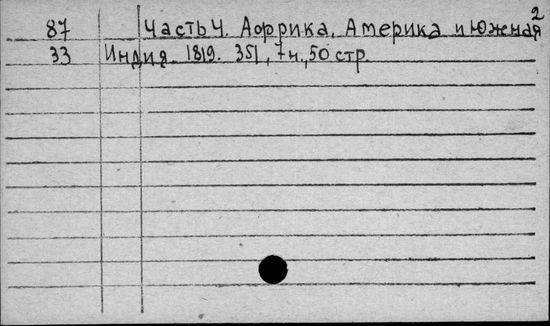 2
87 Часть 4. Африка, Америка и Южная
33 Индия. 1819. 351, 7н., 50 стр.